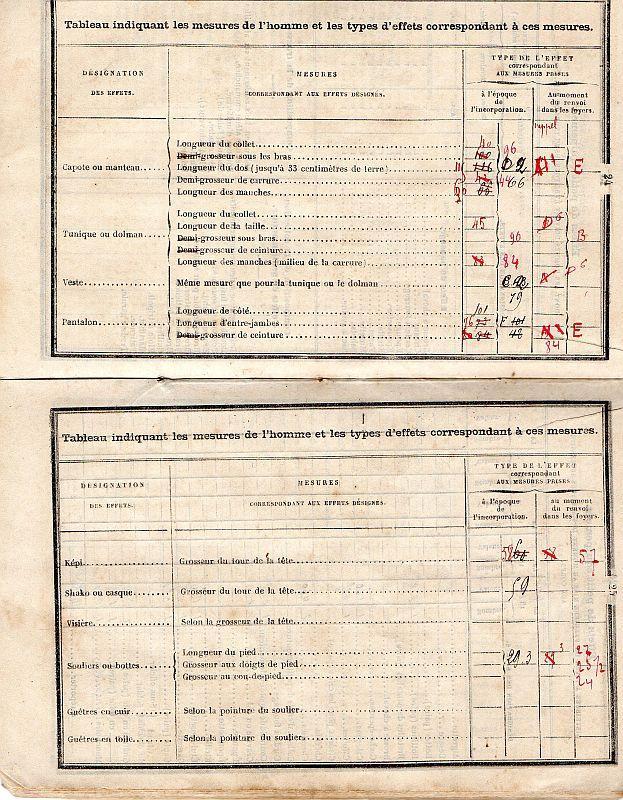 Tableau indiquant les mesures de l'homme et les types d'effets correspondant à ces mesures.
DÉSIGNATION
DES EFFETS.
MESURES
CORRESPONDANT AUX EFFETS DÉSIGNÉS.
TYPE DE L'EFFET
correspondant
AUX MESURES PRISES
à l'époque
de
l'incorporation.
Au moment
du renvoi
dans les foyers.
rappel
Capote ou manteau
Longueur du collet 40
Demi-grosseur sous les bras 96
Longueur du dos (jusqu'à 33 centimètres de terre) E
Demi-grosseur de carrure
Longueur des manches
Tunique ou dolman
Longueur du collet
Longueur de la taille 45
Demi-grosseur sous bras 96 B
Demi-grosseur de ceinture
Longueur des manches (milieu de la carrure) 84
Veste
Même mesure que pour la tunique ou le dolman
79
Pantalon
Longueur de côté 101
Longueur d'entre-jambes F 101 E
Demi-grosseur de ceinture 48
84
24
Tableau indiquant les mesures de l'homme et les types d'effets correspondant à ces mesures.
DÉSIGNATION
DES EFFETS.
MESURES
CORRESPONDANT AUX EFFETS DÉSIGNÉS.
TYPE DE L'EFFET
correspondant
AUX MESURES PRISES
à l'époque
de
l'incorporation.
au moment
du renvoi
dans les foyers.
Képi Grosseur du tour de la tête 57
Shako ou casque Grosseur du tour de la tête 59
Visière Selon la grosseur de la tête
Souliers ou bottes
Longueur du pied 27
Grosseur aux doigts de pied 29.3 25 1/2
Grosseur au cou-de-pied 24
Guêtres en cuir Selon la pointure du soulier
Guêtres en toile Selon la pointure du soulier